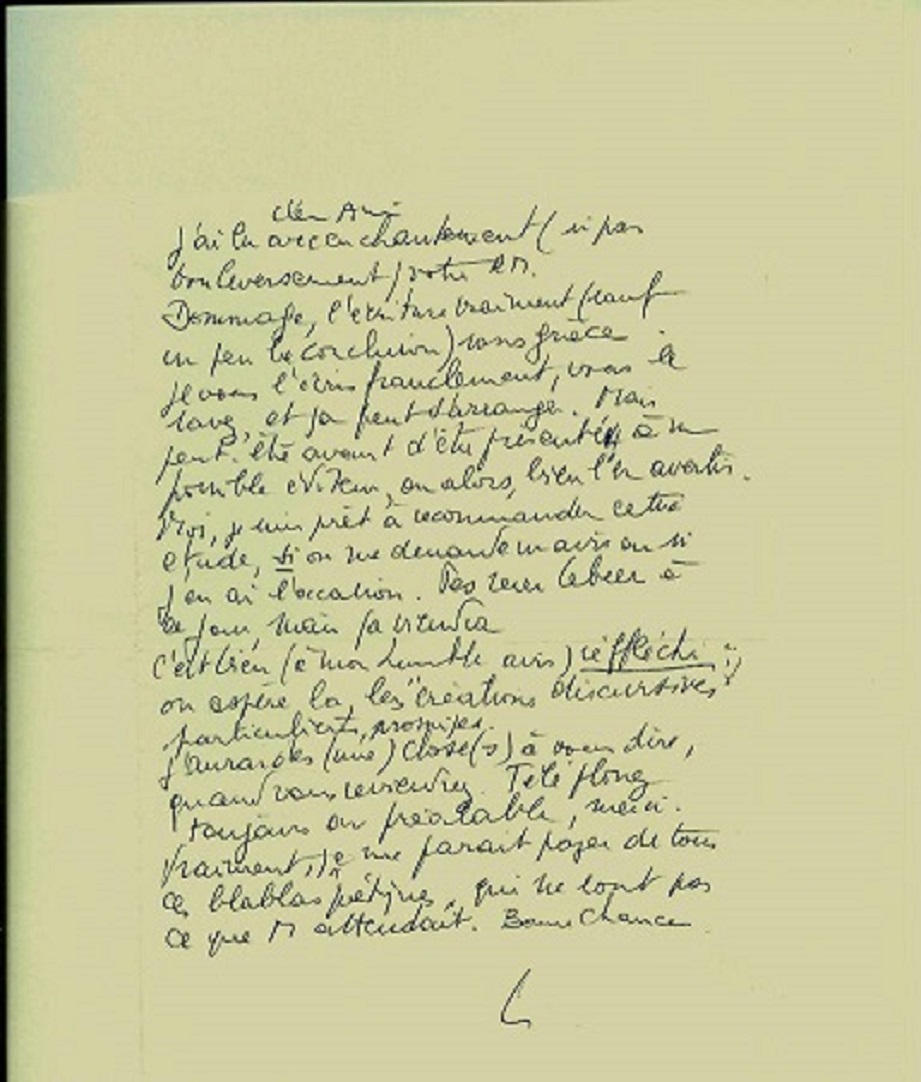 cher Ami
J'ai lu avec enchantement (si pas
bouleversement) votre RM.
Dommage, l'écriture vraiment (sauf
un peu la conclusion) sans grâce.
Je vous l'écris franchement, vous le
savez, et ça peut s'arranger. Mais
peut-être avant d'être présenté à un
possible éditeur, ou alors, bien l'en avertir.
Moi, je suis prêt à recommander cette
étude, si on me demande mon avis ou si
j'en ai l'occasion. Pas reçu à
ce jour, mais ça viendra
C'est bien (à mon humble avis) réfléchi
on espère la, les "créations discursives"
particulières,
J'aurai des (une) chose(s) à vous dire,
quand vous reviendrez. Téléphonez
toujours au préalable, merci.
Vraiment, me parait de tous
ces blablas, qui ne sont pas
ce que M attendait. Bonne Chance